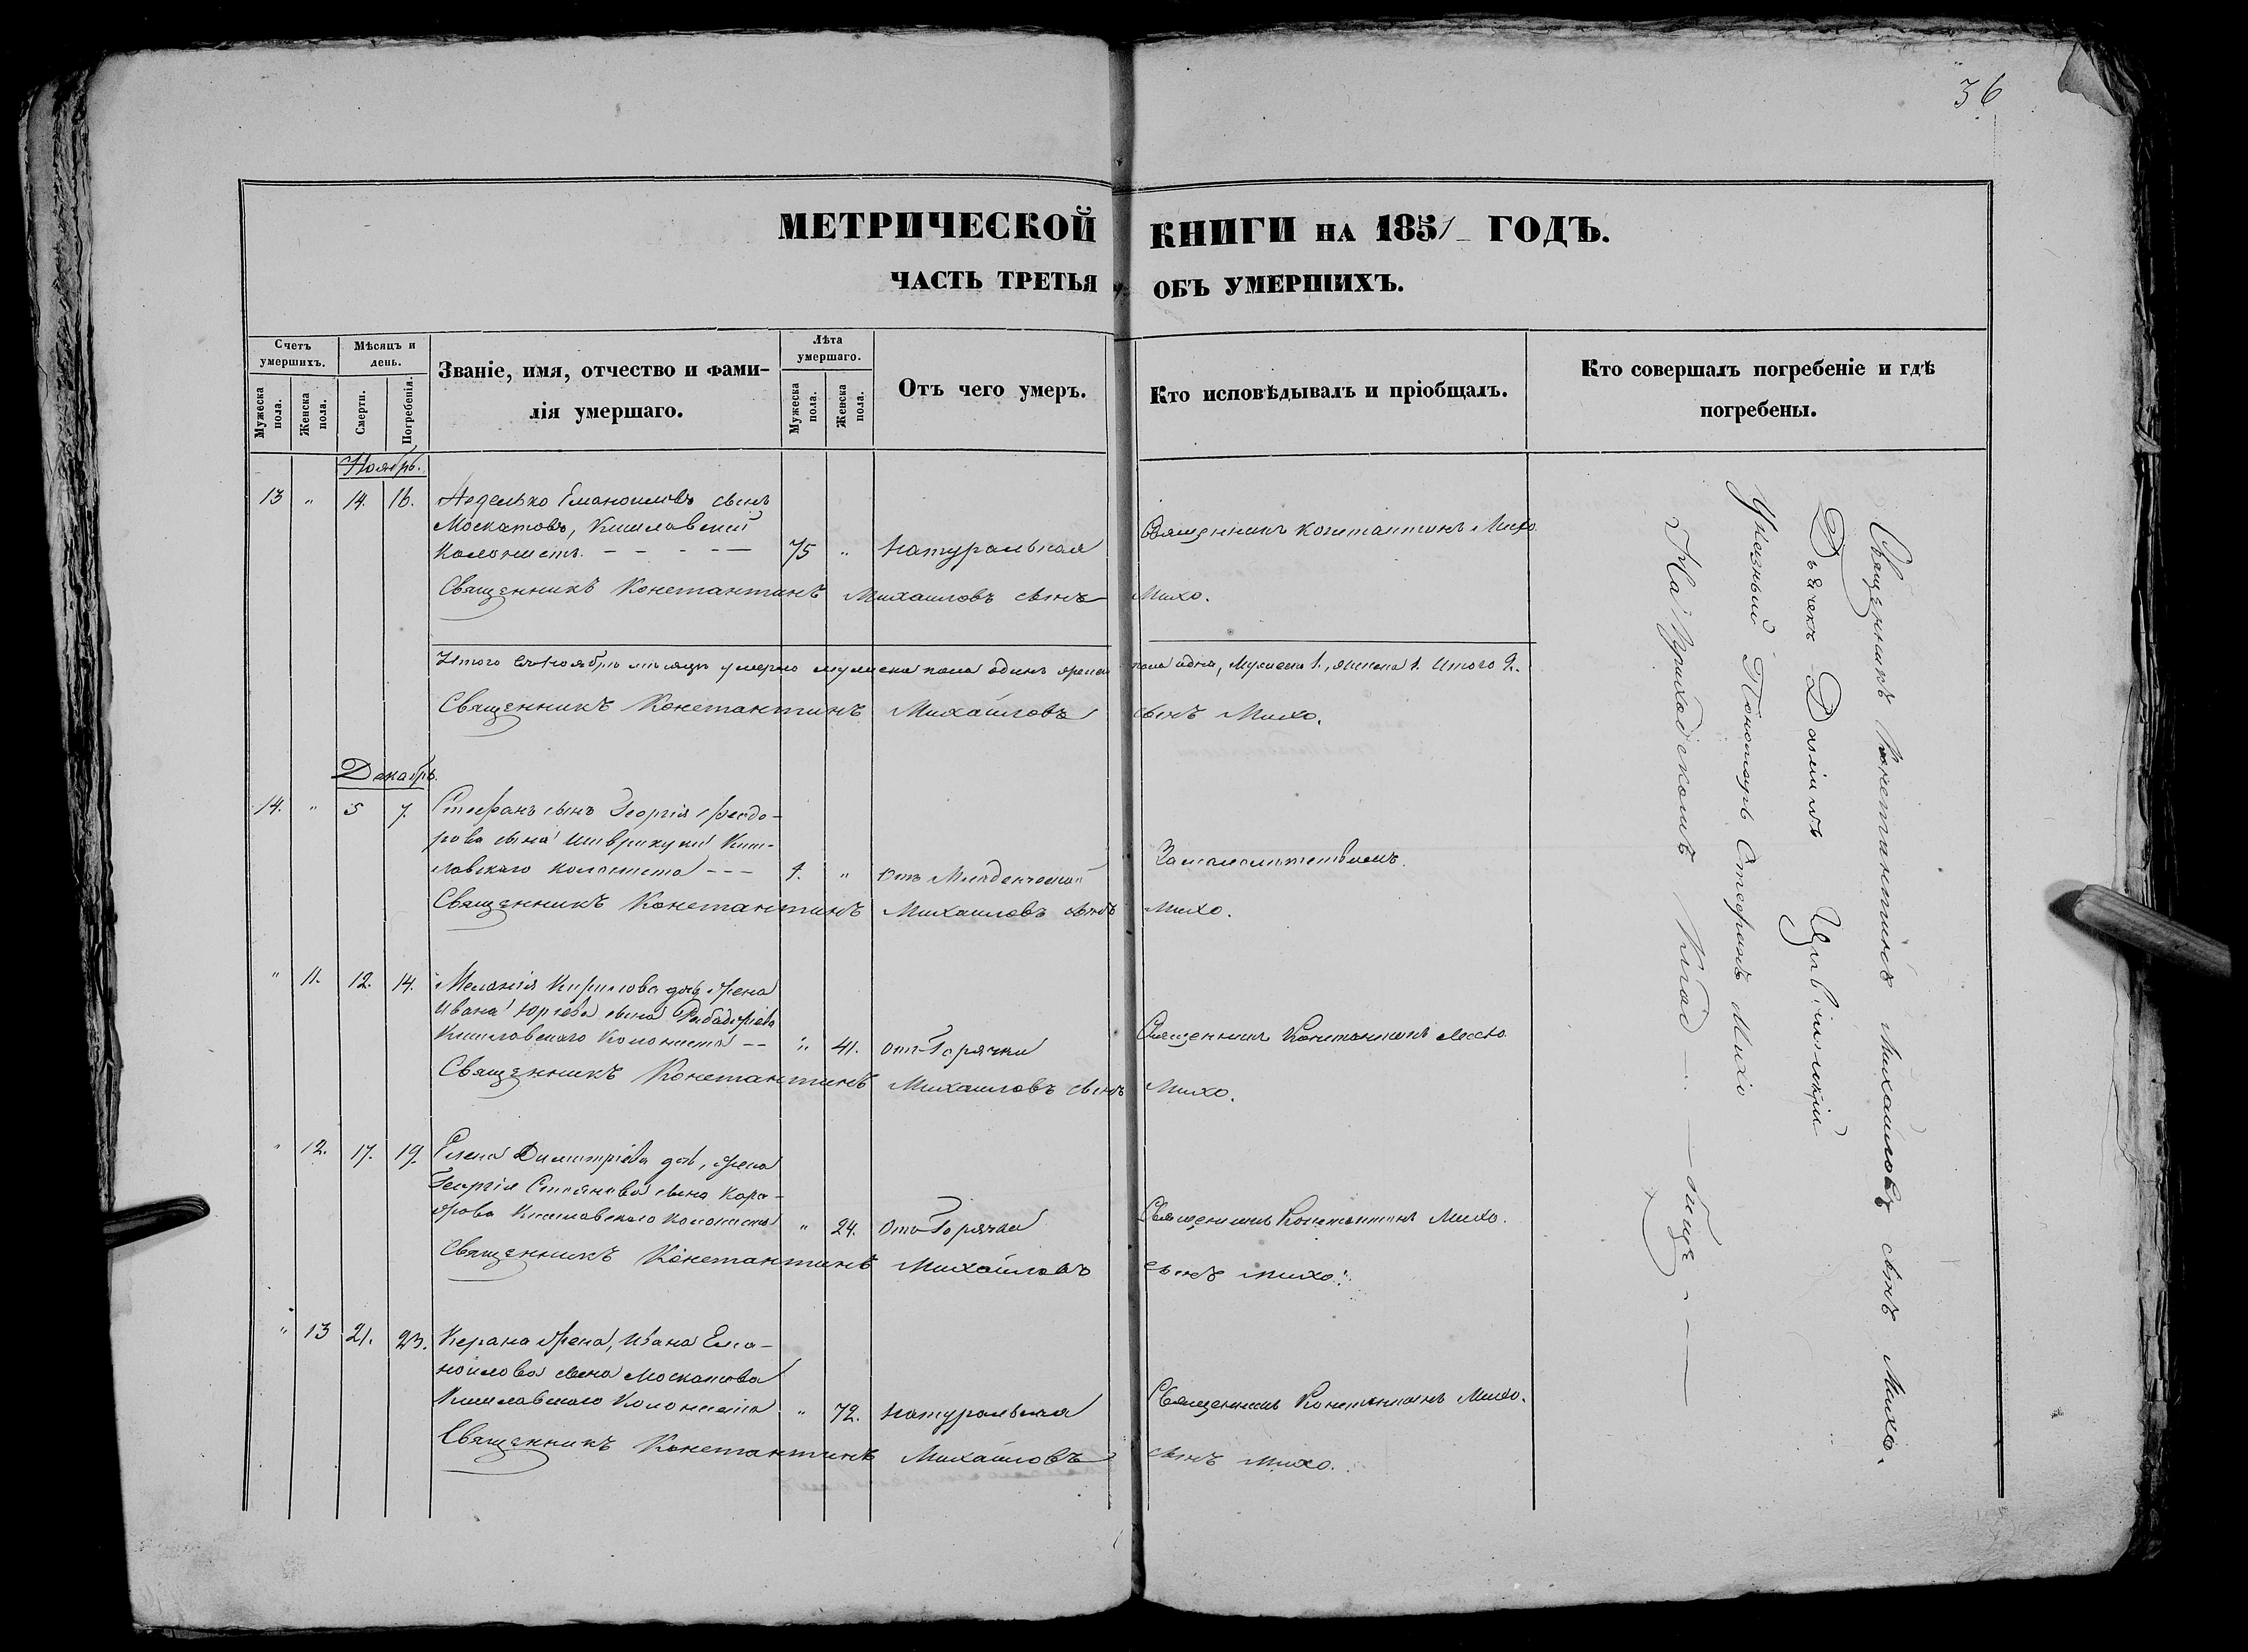 36
МЕТРИЧЕСКОЙ КНИГИ НА 1851 ГОДЪ.
ЧАСТЬ ТРЕТЬЯ ОБЪ УМЕРШИХЪ.
Счетъ умершихъ.
Мужеска пола.
Женска пола.
Мѣсяцъ и день.
Смерти.
Погребенія.
Званіе, имя, отчество и фами-
лія умершаго.
Лѣта умершаго.
Мужеска пола.
Женска пола.
Отъ чего умеръ.
Кто исповѣдывалъ и пріобщалъ.
Кто совершалъ погребеніе и гдѣ
погребены.
Ноябрь.
13 " 14. 16. Неделько Емановиловъ сынъ
Москатовъ,
Колонистъ. 75 " Натуральная Священникъ Константинъ Михо.
Священникъ Константинъ Михаиловъ сынъ Михо.
Итого въ Ноябрѣ мѣсяцѣ умерло мужеска пола одинъ женска пола одна, Мужеска 1., женска 1. Итого 2.
Священникъ Константинъ Михайловъ сынъ Михо.
Декабрь.
14. " 5 7. Стефанъ сынъ Георгія Феодо-
рова сына
колониста 1. " Отъ Младенческой
Священникъ Константинъ Михаиловъ сынъ Михо.
" 11. 12. 14. Меланія Кирилова дочь жена
Ивана Юрьева сына
Колониста " 41. отъ Горячки Священникъ Константинъ Михо.
Священникъ Константинъ Михаиловъ сынъ Михо.
" 12. 17. 19. Елена Димитріева дочь, жена
Георгія Стоянова сына Кара-
жова Колониста " 24. Отъ Горячки Священникъ Константинъ Михо.
Священникъ Константинъ Михайловъ сынъ Михо.
" 13 21. 23. Керана жена, Ивана Ема-
ноилова сына Москатова
Колониста " 72. Натуральная Священникъ Константинъ Михо.
Священникъ Константинъ Михайловъ сынъ Михо.
Священникъ Константинъ Михайловъ сынъ Михо.
Дьячекъ Даніилъ
Указный Пономарь Стефанъ Михо
На Приходскомъ Клад — бищѣ